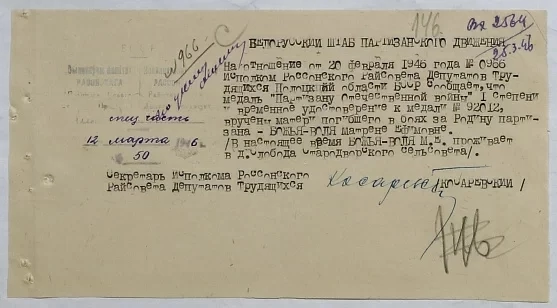 146
Вх 2564
25.3.46
№966
БЕЛОРУССКИЙ ШТАБ ПАРТИЗАНСКОГО ДВИЖЕНИЯ
На отношение от 20 февраля 1946 года № 0956
исполком Россонского Райсовета Депутатов Тру-
дящихся Полоцкий области БССР сообщает, что
медаль "Партизану Отечественной войны" I степени
и временное удостоверение к медали № 92012,
вручены матери погибшего в боях за Родину парти-
зана - БОЖЬЯ-ВОЛЯ Матрене Ефимовне.
/В настоящее время БОЖЬЯ-ВОЛЯ М.Е. проживает
в д.Слобода Стародворского сельсовета/.
спец.часть
12 марта 1946
50
Секретарь исполкома Россонского
Райсовета Депутатов Трудящихся
/КОСАРЕВСКИЙ/